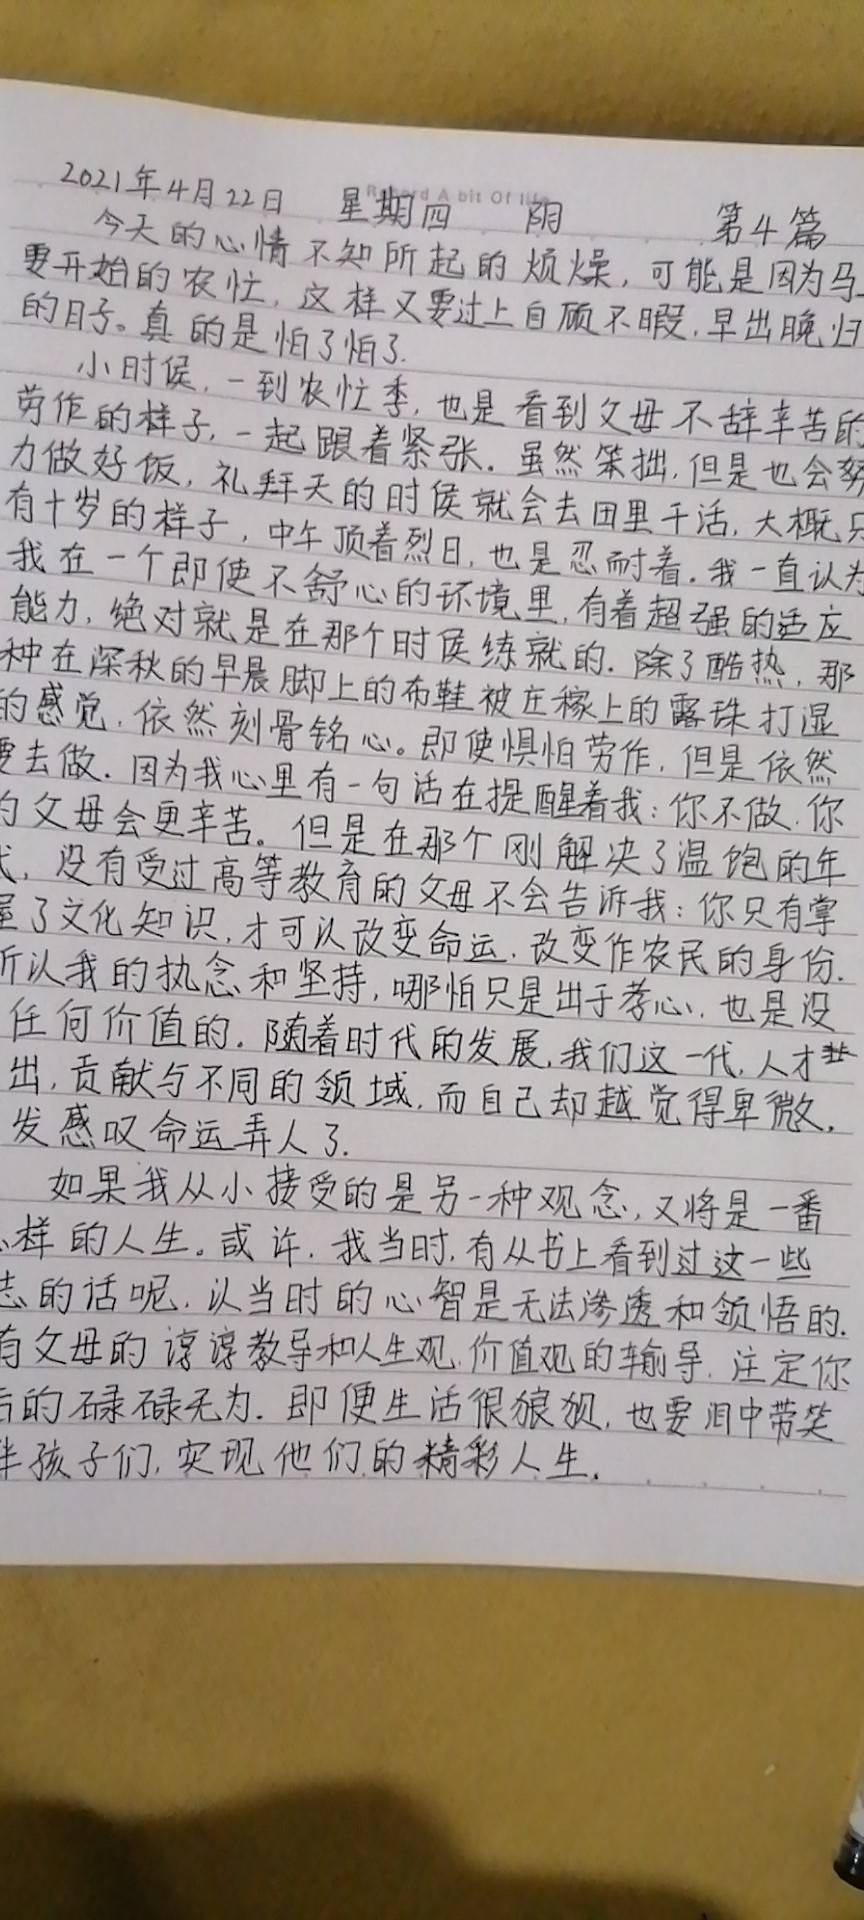 Record A bit Of life
2021年4月22日 星期四 阴 第4篇
今天的心情不知所起的烦燥，可能是因为马
要开始的农忙，这样又要过上自顾不暇，早出晚归
的日子。真的是怕了怕了.
小时候，一到农忙季，也是看到父母不辞辛苦的
劳作的样子，一起跟着紧张。虽然笨拙，但是也会努
力做好饭，礼拜天的时侯就会去田里干活，大概只
有十岁的样子，中午顶着烈日，也是忍耐着。我一直认为
我在一个即使不舒心的环境里，有着超强的适应
能力，绝对就是在那个时侯练就的.除了酷热，那
种在深秋的早晨脚上的布鞋被庄稼上的露珠打湿
的感觉，依然刻骨铭心。即使惧怕劳作，但是依然
要去做.因为我心里有一句活在提醒着我：你不做，你
的父母会更辛苦。但是在那个刚解决了温饱的年
，没有受过高等教育的父母不会告诉我：你只有掌
了文化知识，才可以改变命运，改变作农民的身份.
所以我的执念和坚持，哪怕只是出于孝心，也是没
任何价值的.随着时代的发展，我们这一代，人才
出，贡献与不同的领域，而自己却越觉得卑微，
发感叹命运弄人了.
如果我从小接受的是另一种观念，又将是一番
样的人生。或许，我当时，有从书上看到过这一些
志的话呢，以当时的心智是无法渗透和领悟的.
有父母的谆谆教导和人生观，价值观的输导，注定你
后的碌碌无为.即便生活很狼狈，也要泪中带笑
伴孩子们，实现他们的精彩人生.